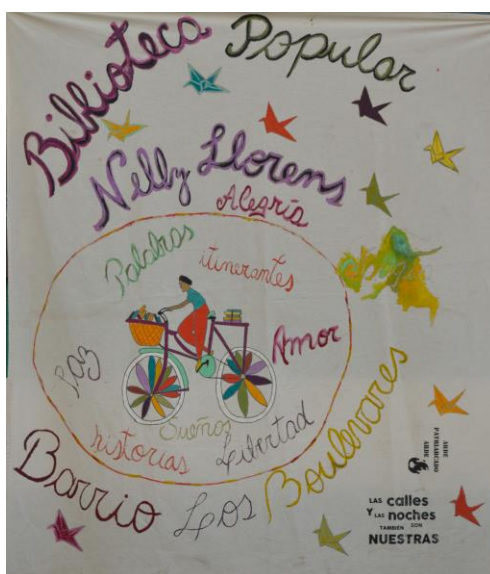 Biblioteca Popular
Nelly Llorens
Alegría
Palabras
itinerantes
Paz
Amor
Sueños
historias
Libertad
Barrio Los Boulevares
ARDE
PATRIARCADO
ARDE
LAS calles
Y LAS noches
TAMBIÉN SON
NUESTRAS